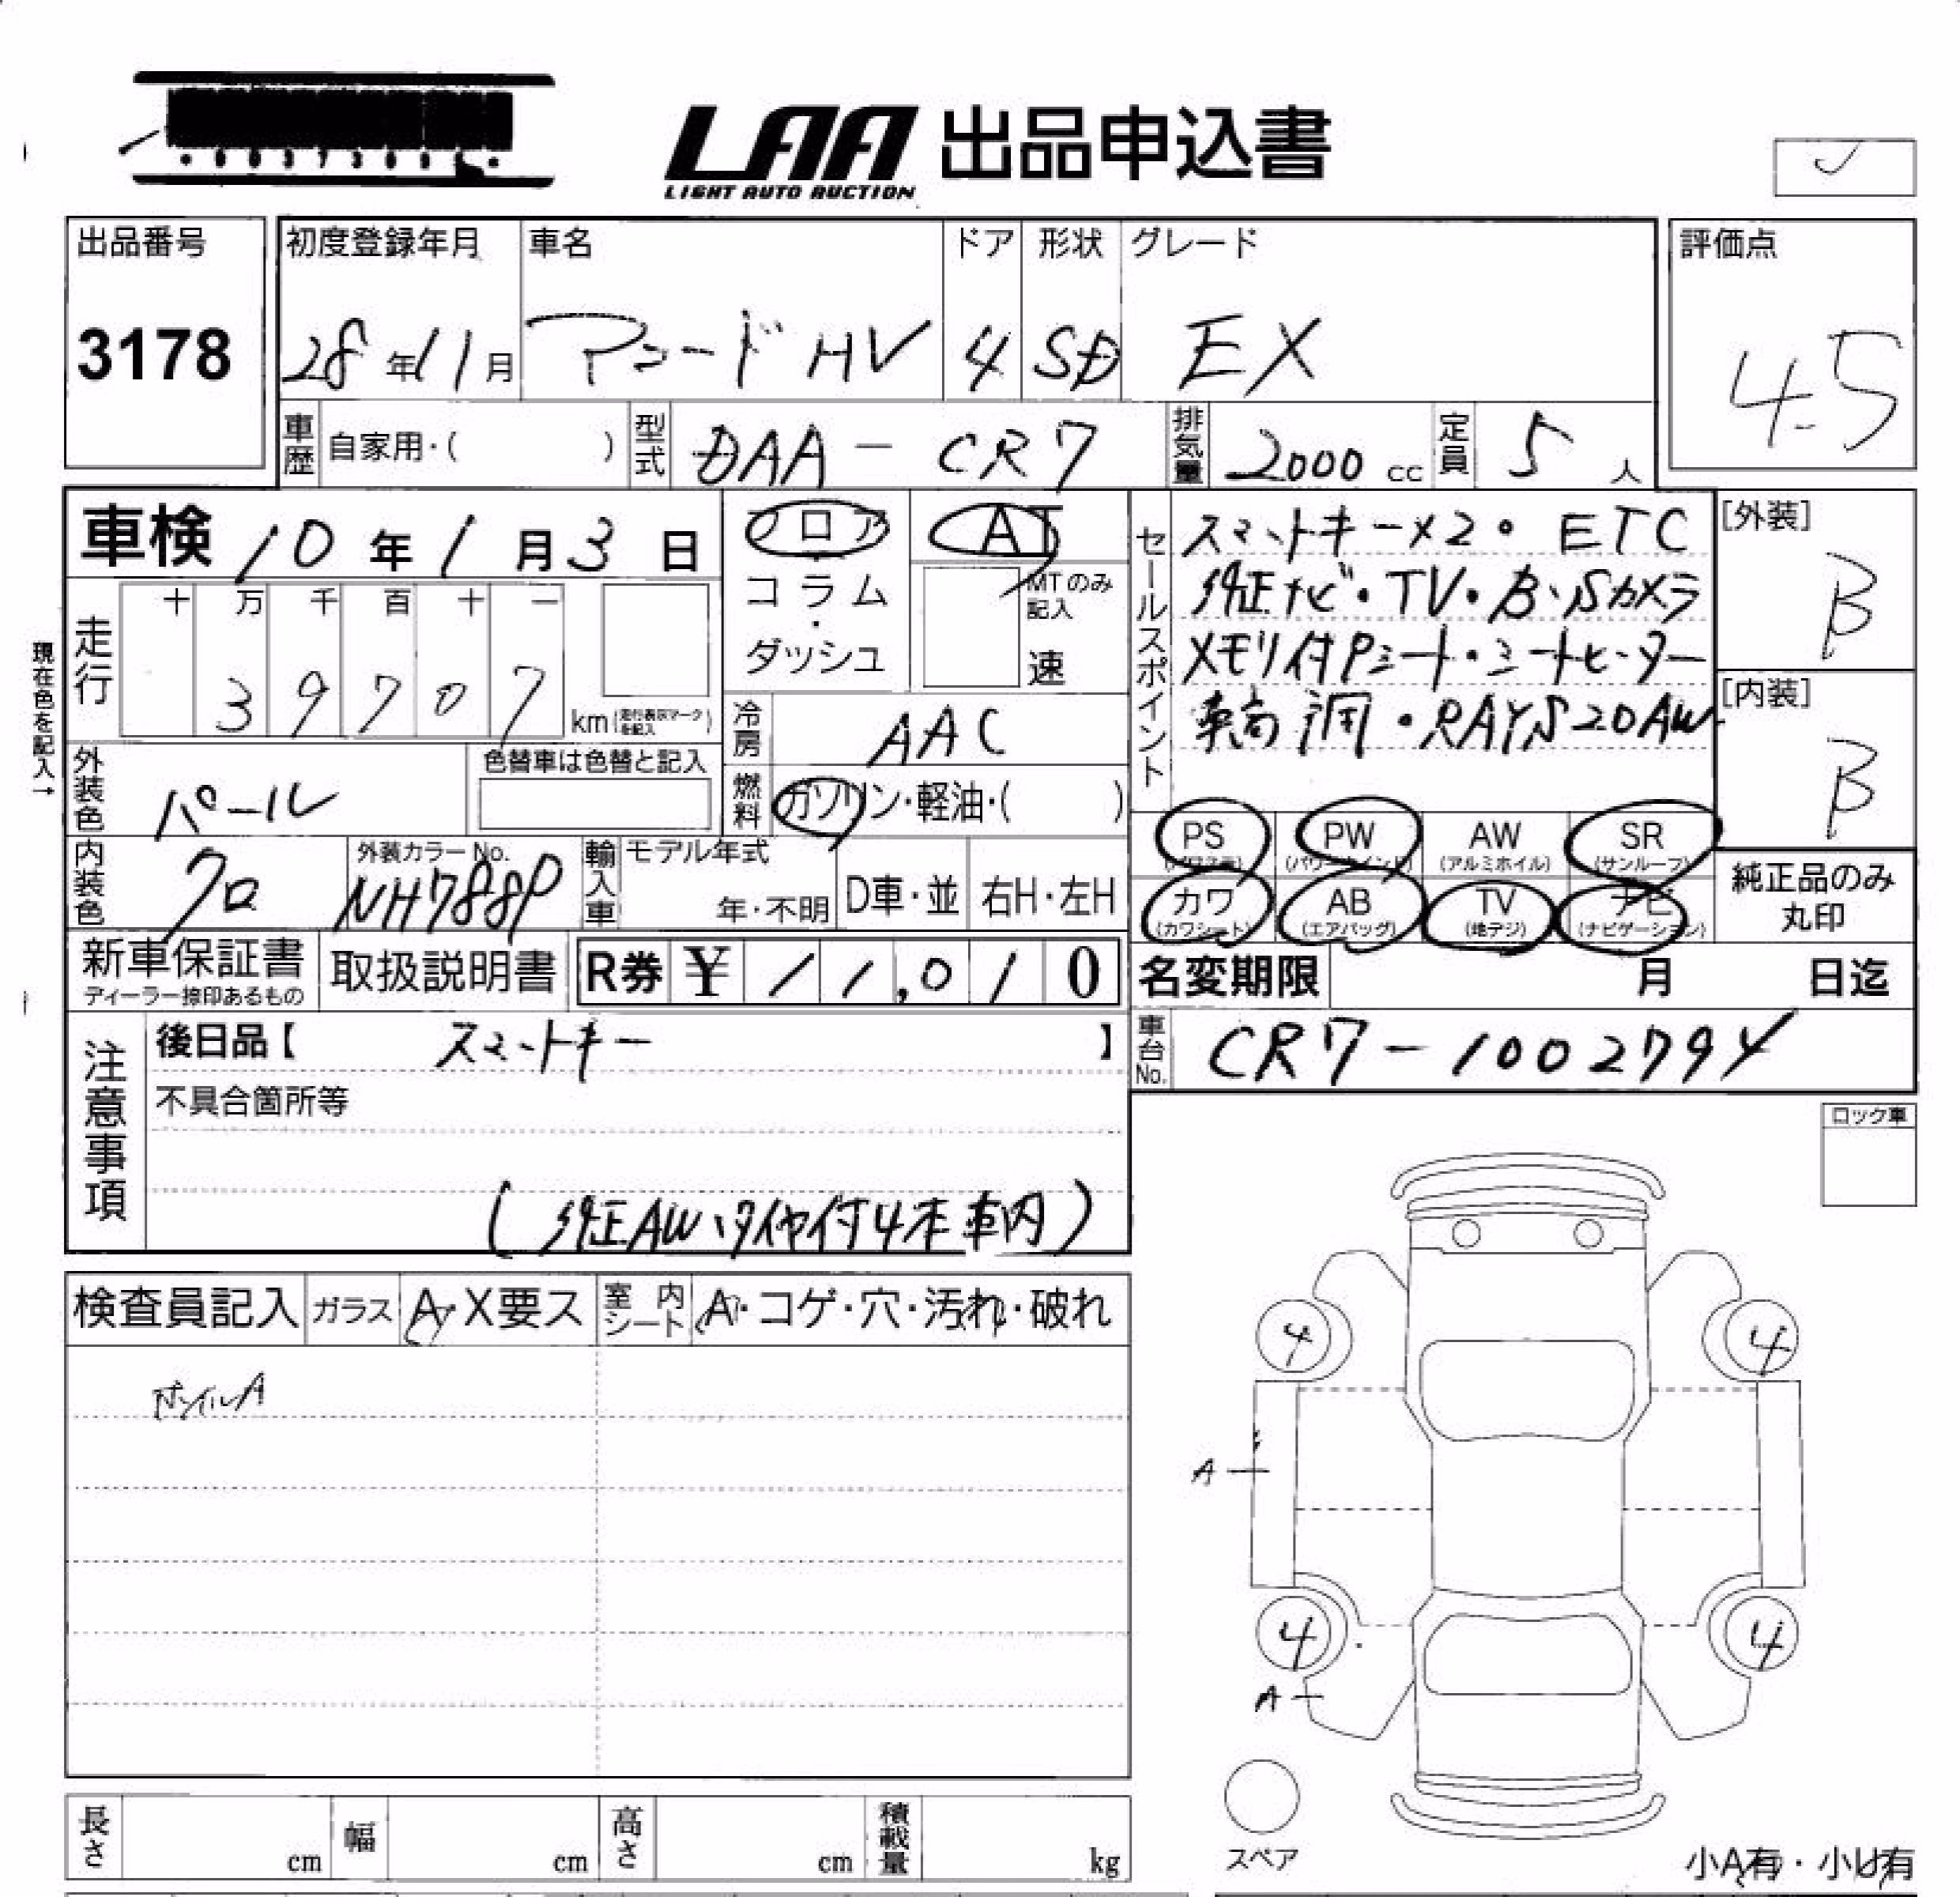 LAA 出品申込書
LIGHT AUTO AUCTION
出品番号
3178
初度登録年月
28年11月
車名
アコードHV
ドア
4
形状
SD
グレード
EX
評価点
4.5
車歴
自家用・( )
型式
DAA-CR7
排気量
2000cc
定員
5人
車検 10年1月3日
フロア・コラム・ダッシュ
AT
MTのみ記入
速
セールスポイント
スマートキー×2。ETC
純正ナビ・TV・B、Sカメラ
メモリ付Pシート・シートヒーター
車高調・RAYS20AW
[外装]
B
[内装]
B
現在色を記入→
走行
十万千百十一
39707
km(走行表示マークを記入)
冷房
AAC
外装色
パール
色替車は色替と記入
燃料
ガソリン・軽油・( )
内装色
クロ
外装カラーNo.
NH788P
輸入車
モデル年式
年・不明
D車・並
右H・左H
PS (パワステ)
PW (パワーウインド)
AW (アルミホイル)
SR (サンルーフ)
カワ (カワシート)
AB (エアバッグ)
TV (地デジ)
ナビ (ナビゲーション)
純正品のみ丸印
新車保証書
ディーラー捺印あるもの
取扱説明書
R券 ¥11,010
名変期限 月 日迄
車台No.
CR7-1002794
注意事項
後日品【 スマートキー 】
不具合箇所等
(純正AW、タイヤ付4本車内)
ロック車
検査員記入
ガラス
A・X要ス
室内シート
A・コゲ・穴・汚れ・破れ
ホイルA
4
4
A
4
4
A
スペア
長さ cm
幅 cm
高さ cm
積載量 kg
小A有・小U有